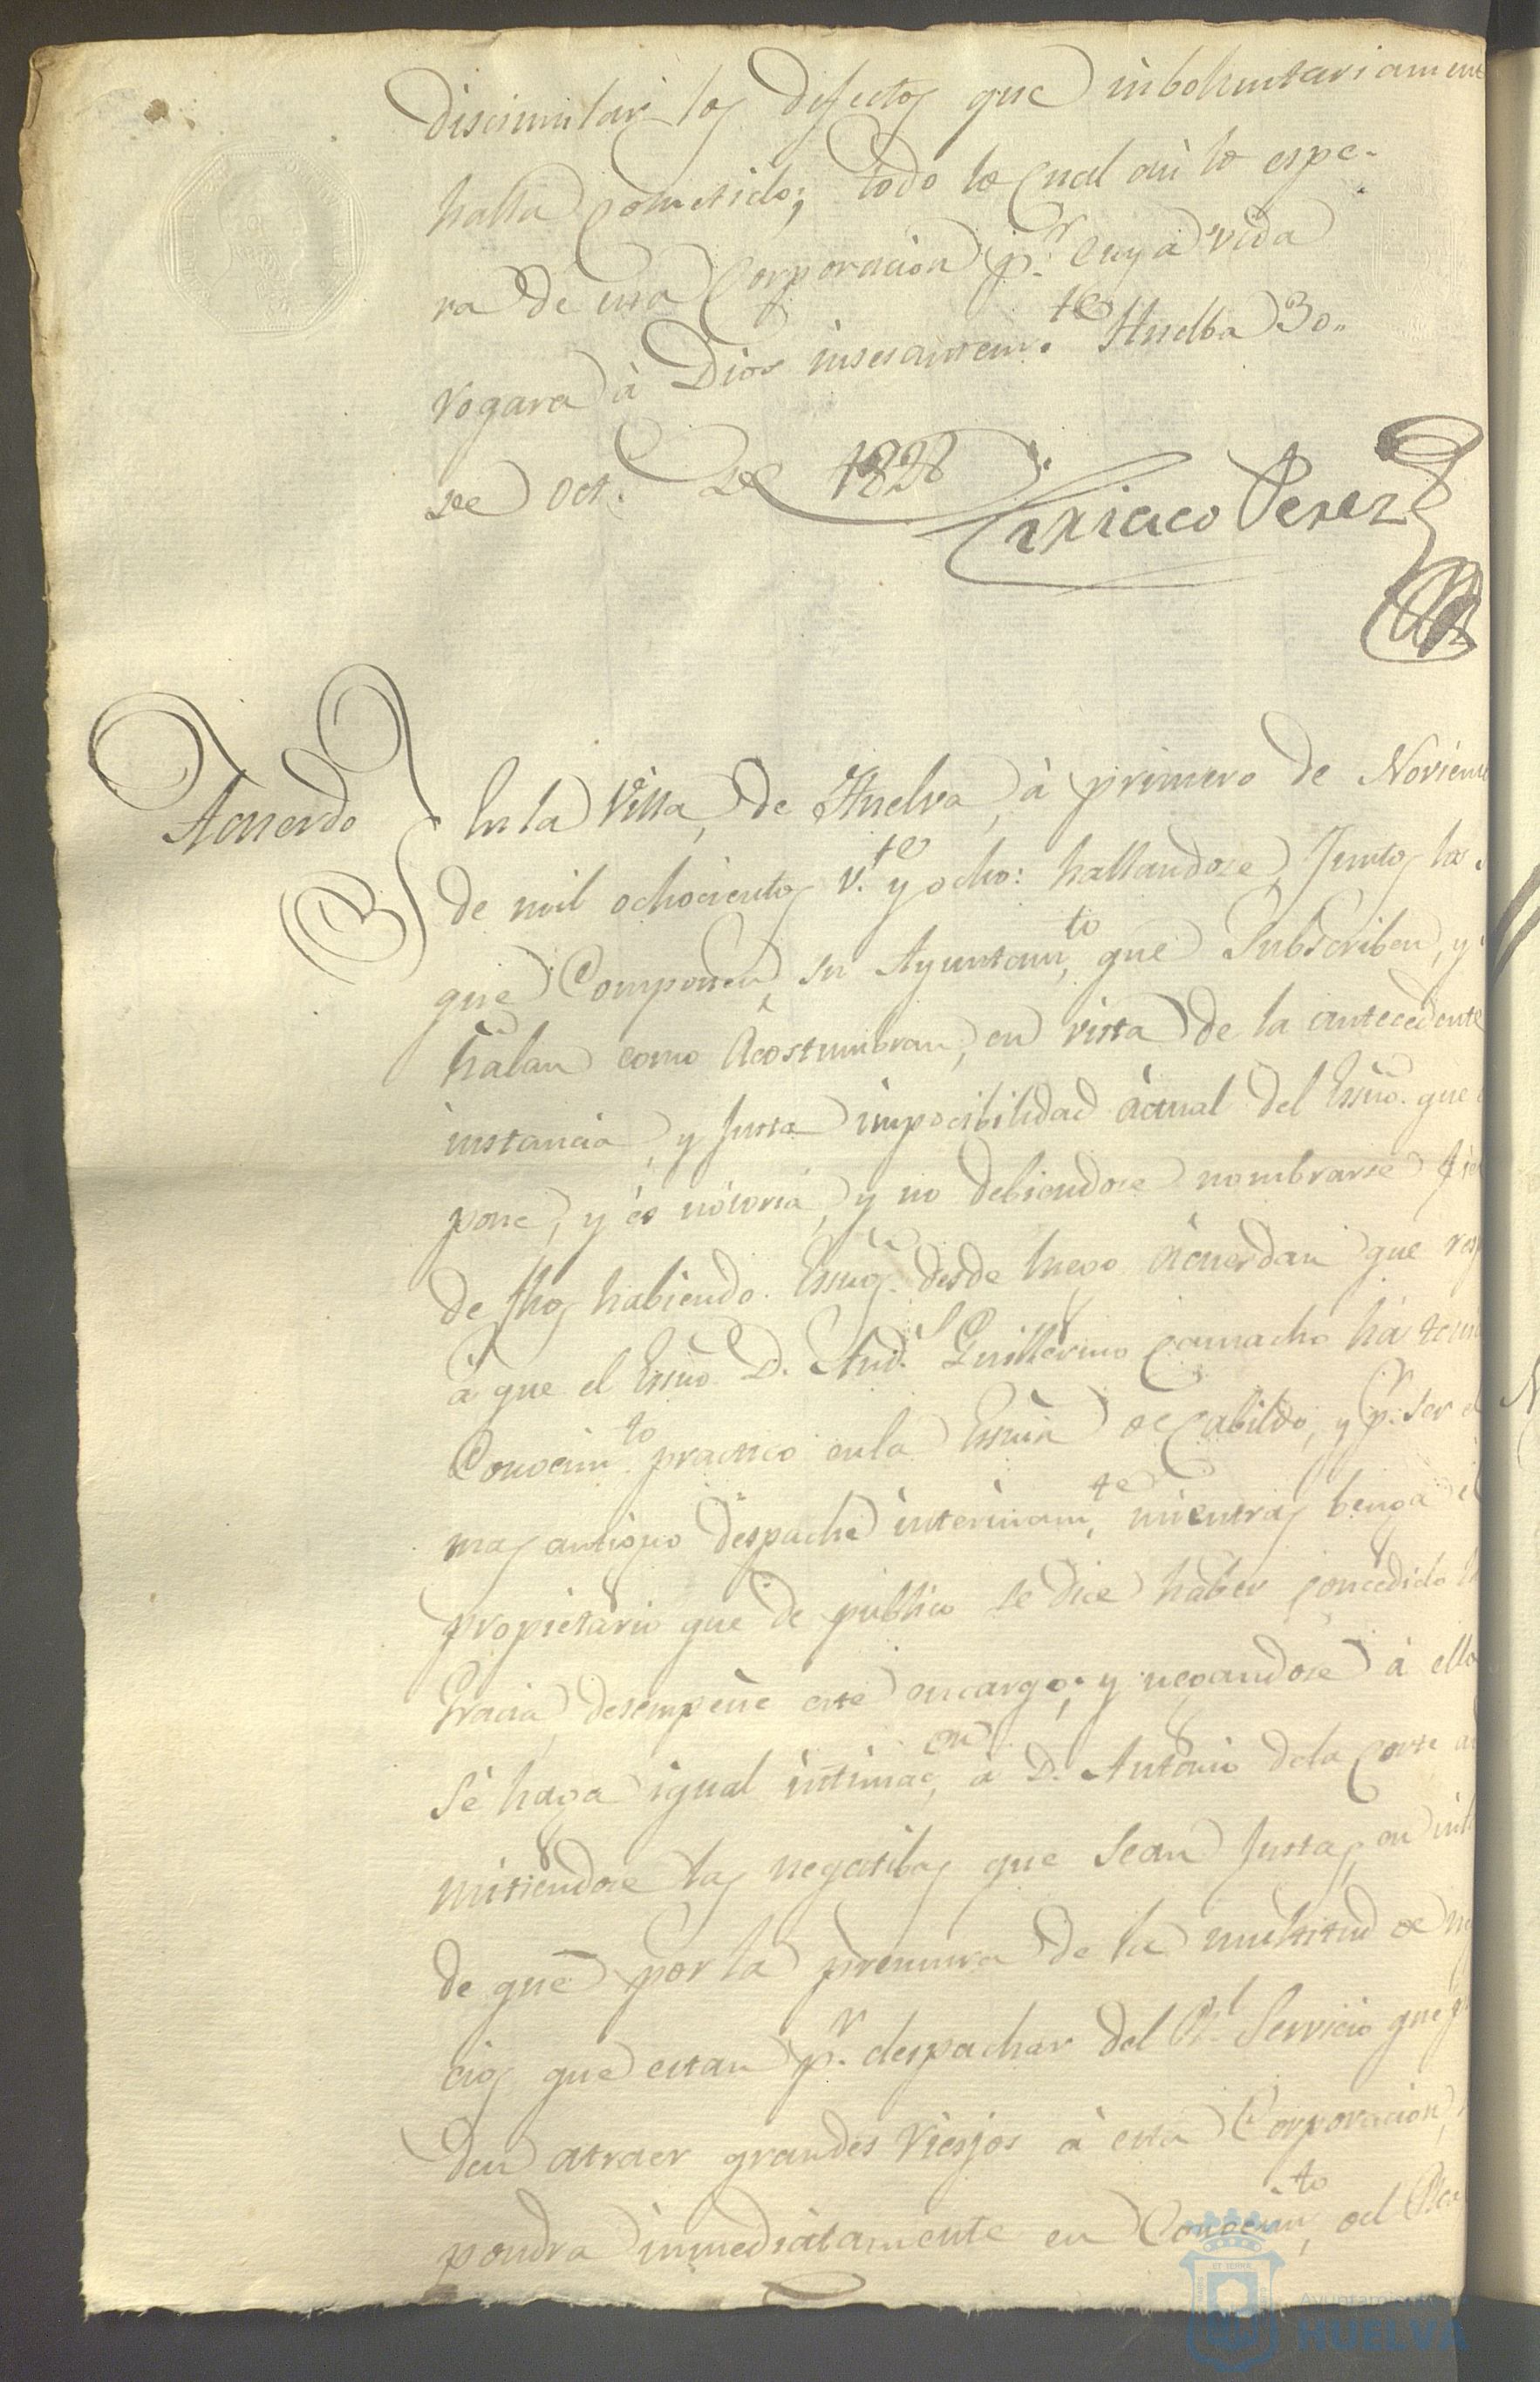 disimular los defectos que inboluntariament
halla Cometido; todo lo Cual asi lo espe-
ra de esa Corporacion p.r Cuya vida
rogara à Dios insesantem.te Huelba 30..
de Oct. de 1828
Ciriaco Perez
Acuerdo
En la Villa, de Huelva, à primero de Noviem
de mil ochocientos v.te y ocho: hallandose Juntos los
que Componen su Ayuntam.to que Subscriben, y
ñalan como Acostumbran, en vista de la antecedente
instancia, y Justa imposibilidad àctual del Essno. que
pone, y és nótoria, y no debiendose nombrarse fiel
de fhos habiendo Essnos. desde luego àcuerdan que res
à que el Essno D. And.s Guillermo Camacho ha ten
Conocim.to practico en la Essnia de Cabildo, y p.r ser el
mas antiguo despache interinam.te mientras benga el
propietario que de público se dice haber concedido
Gracia, desempeñe este encargo; y negandose à ello
Sè haga igual intimac.on à D. Antonio dela Corte
mitiendose las negatibas que Sean Justas, en int
de que por la premura de la multitud de ne
cios que estan p.r despachar del R.l Servicio que p
den atraer grandes riesjos à esta Corporacion,
pondra inmediatamente en Conocim.to del
Ayuntamiento
HUELVA